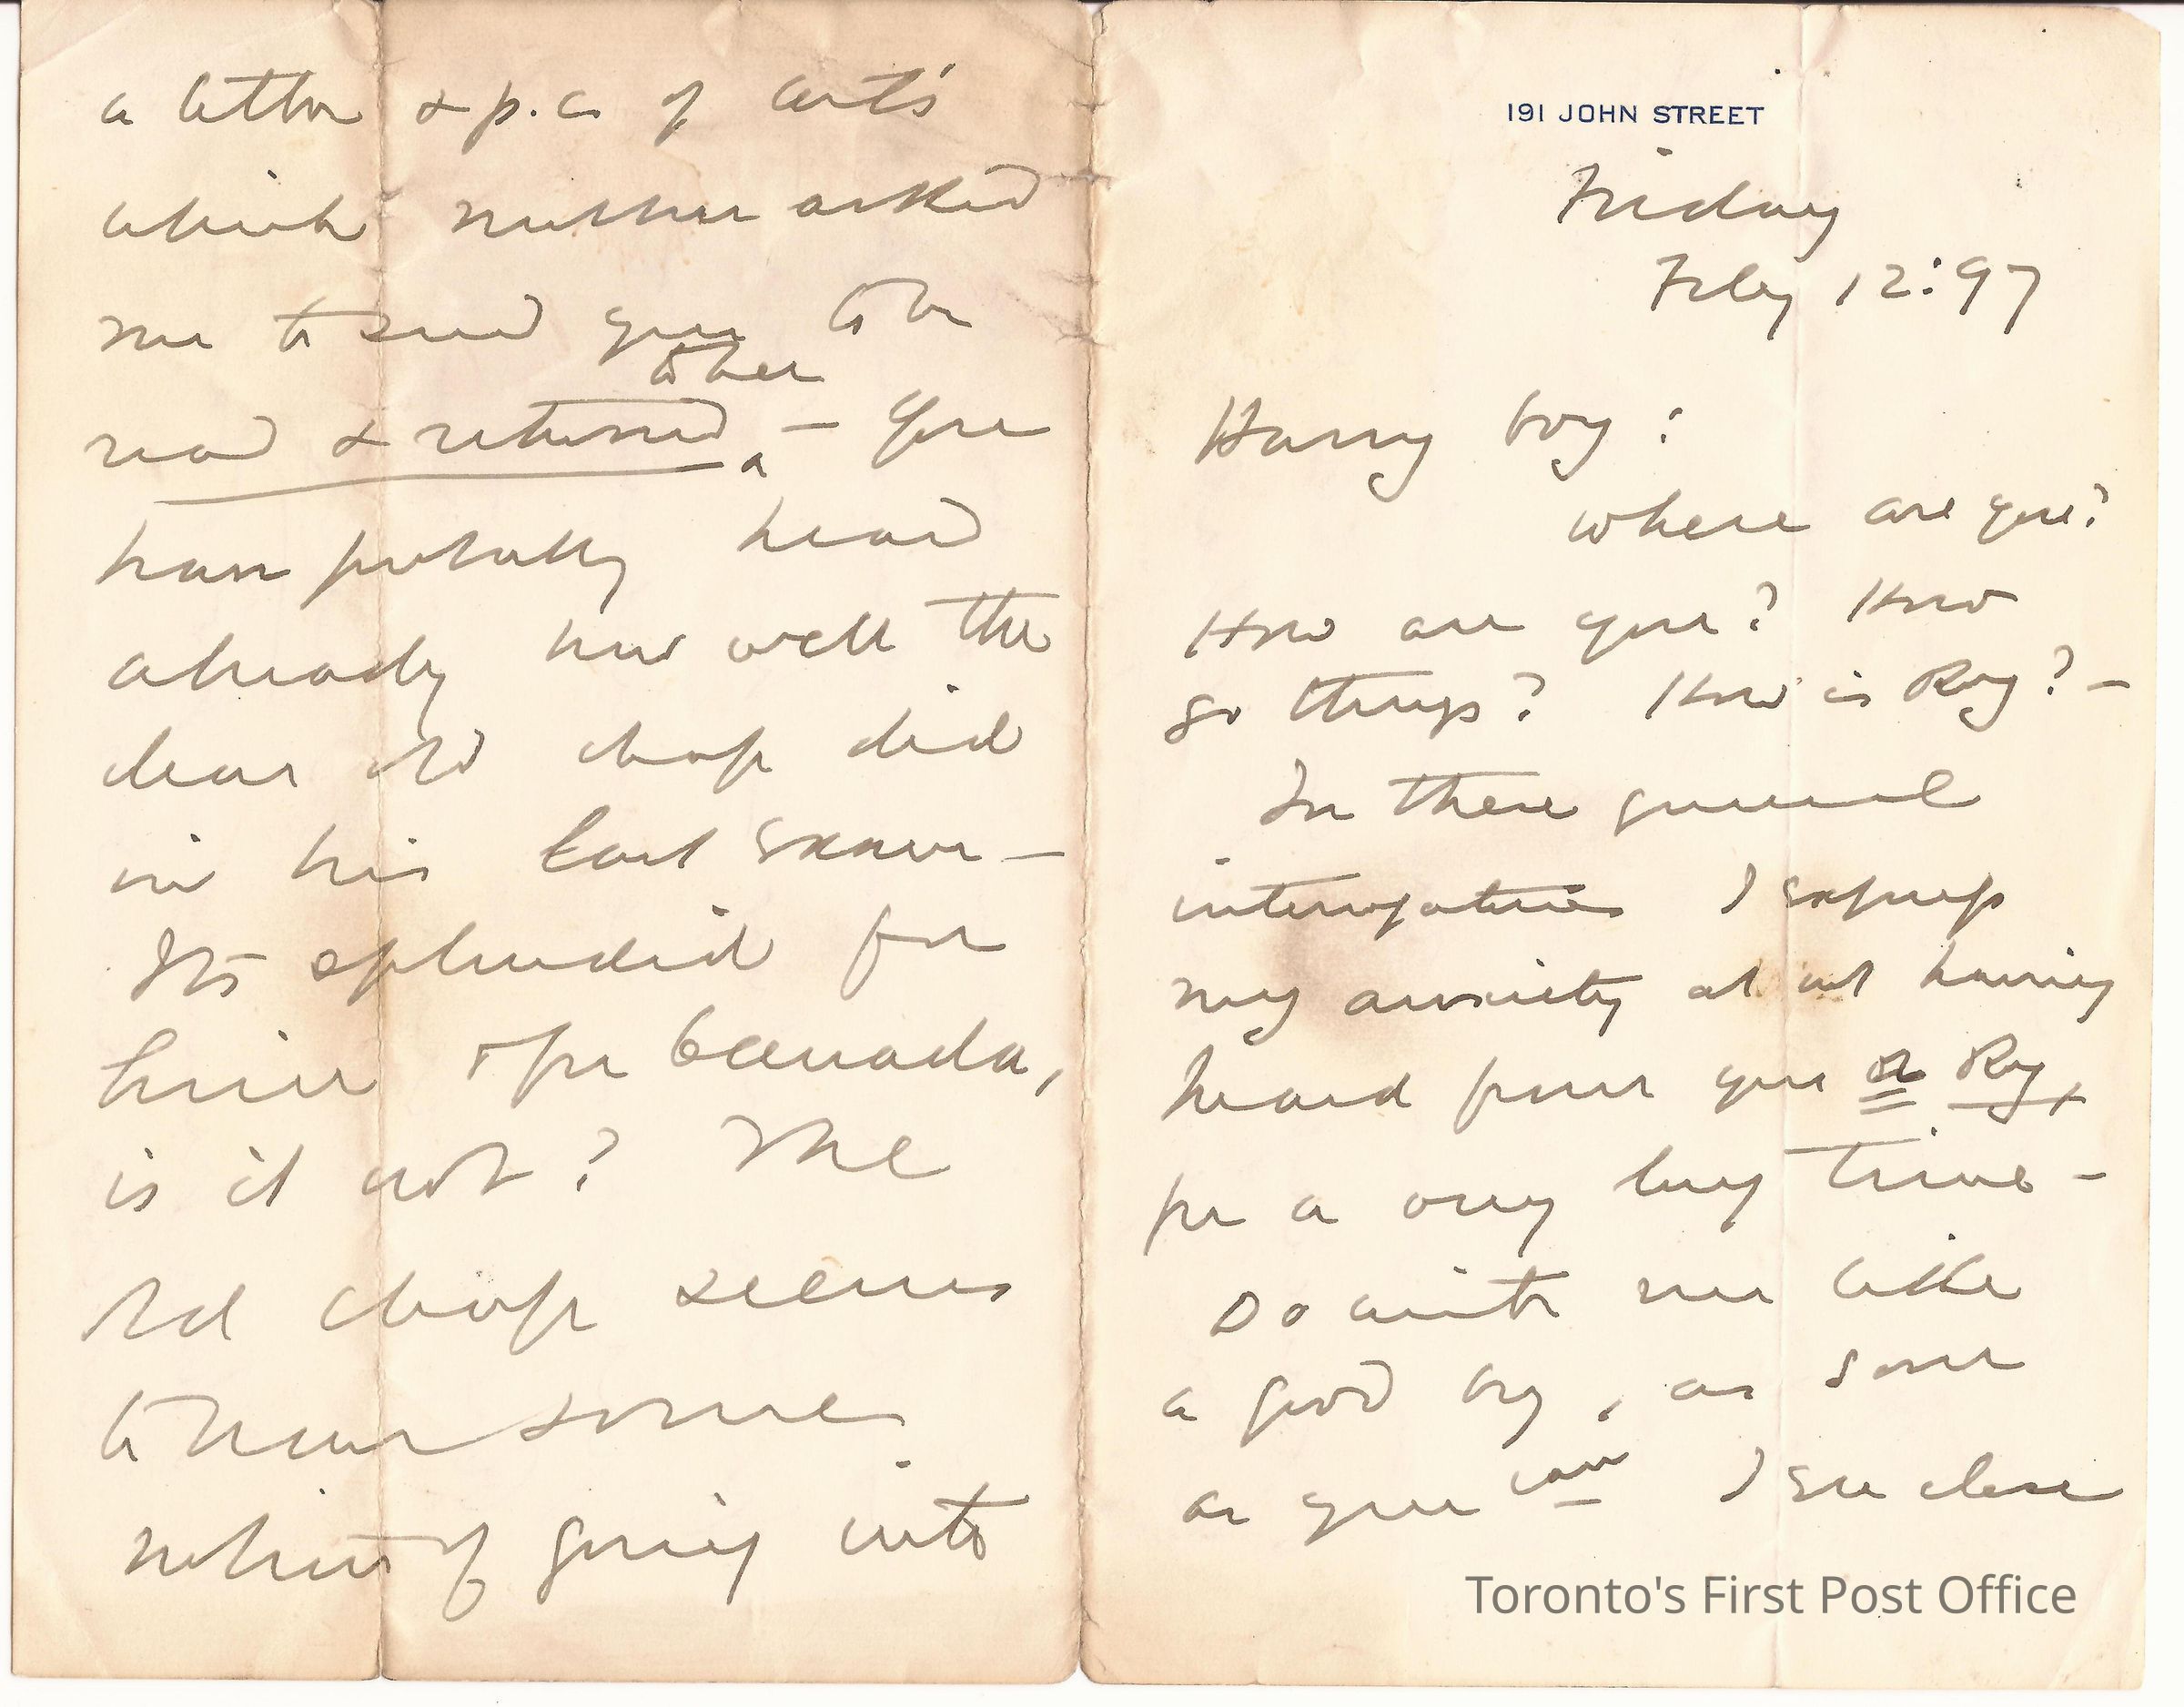 191 JOHN STREET
Friday
Feby 12:97
Harry boy:
where are you?
How are you? How
go things? How is Roy? –
In these general
interrogations I express
my anxiety at not having
heard from you or Roy,
for a very long time –
Do write me like
a good boy, as soon
as you can I enclose
a letter & p.c. of
which mother asked
me to send you to be
to her
read & returned – You
have probably heard
already how well the
dear old chap did
in his last exam –
Its splendid for
him & for Canada,
is it not? The
old chap seems
to have some
notion of going into
Toronto's First Post Office